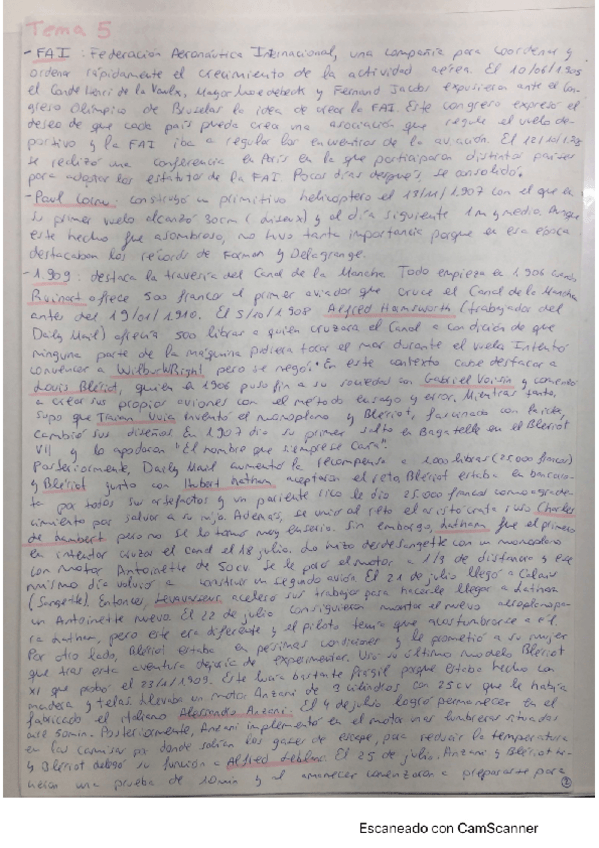 Tema 5
- FAI : Federación Aeronáutica Internacional, una compañía para coordenar y
ordena rápidamente el crecimiento de la actividad aérea. El 10/06/1905
el Conde Henri de la Vaulx, Mayor Moedebeck y Fernand Jacobs expusieron ante el Con-
greso Olímpico de Bruselas la idea de crear la FAI. Este congreso expresó el
deseo de que cada país pueda crea una asociación que regule el vuelo de-
portivo y la FAI iba a regular los de la aviación. El
se realizó una conferencia en París en la que participaron distintos países
para adoptar los estatutos de la FAI. Pocos días después, se consolidó.
- Paul Cornu: construyó un primitivo helicóptero el 13/11/1907 con el que en
su primer vuelo alcanzó 30cm ( ) y al día siguiente 1m y medio. Aunque
este hecho fue asombroso, no tuvo tanta importancia porque en esa época
destacaban los récords de Farman y Delagrange.
- 1.909 : destaca la travesía del Canal de la Mancha. Todo empieza en 1.906 cuando
Ruinart ofrece 500 francos al primer aviador que cruce el Canal de la Mancha
antes del 19/01/1.910. El 5/10/1908 Alfred Hamsworth (trabajador del
Daily Mail) ofrecía 500 libras a quien cruzara el Canal a condición de que
ninguna parte de la máquina pudiera tocar el mar durante el vuelo. Intentó
convencer a Wilbur Wright pero se negó. En este contexto cabe destacar a
Louis Blériot, quien en 1906 puso fin a su sociedad con Gabriel Voisin y comenzó
a crear sus propios aviones con el método ensayo y error. Mientras tanto,
supo que Traian Vuia inventó el monoplano y Blériot, fascinado con la idea,
cambió sus diseños. En 1.907 dio su primer salto en Bagatelle en el Blériot
VII y lo apodaron "El hombre que siempre se caía".
Posteriormente, Daily Mail aumentó la recompensa a 1.000 libras (25.000 francos)
y Blériot junto con Hubert Latham aceptaron el reto. Blériot estaba en bancarro-
ta por todos sus artefactos y un pariente rico le dio 25.000 francos como agrade-
cimiento por salvar a su hijo. Además, se unió al reto el aristócrata ruso Charles
de Lambert pero no se lo tomó muy enserio. Sin embargo, Latham fue el primero
en intentar cruzar el canal el 18 julio. Lo hizo desde Sangatte con un monoplano
con motor Antoinette de 50cv. Se le paró el motor a 1/3 de distancia y ese
mismo día volvió a construir un segundo avión. El 21 de julio llegó a Calais
(Sangatte). Entonces, Levavasseur aceleró sus trabajos para hacerle llegar a Latham
un Antoinette nuevo. El 22 de julio consiguieron montar el nuevo aeroplano pa-
ra Latham, pero este era diferente y el piloto tenía que acostumbrarse a él.
Por otro lado, Blériot estaba en pésimas condiciones y le prometió a su mujer
que tras esta aventura dejaría de experimentar. Usó su último modelo Blériot
XI que probó el 23/1/1909. Este lucía bastante frágil porque estaba hecho con
madera y telas. Llevaba un motor Anzani de 3 cilindros con 25cv que le había
fabricado el italiano Alessandro Anzani. El 4 de julio logró permanecer en el
aire 50min. Posteriormente, Anzani implementó en el motor unas lumbreras situadas
en las camisas por donde salían los gases de escape, para reducir la temperatura
y Blériot delegó su función a Alfred Leblanc. El 25 de julio, Anzani y Blériot hi-
cieron una prueba de 10min y al amanecer comenzaron a prepararse para
Escaneado con CamScanner